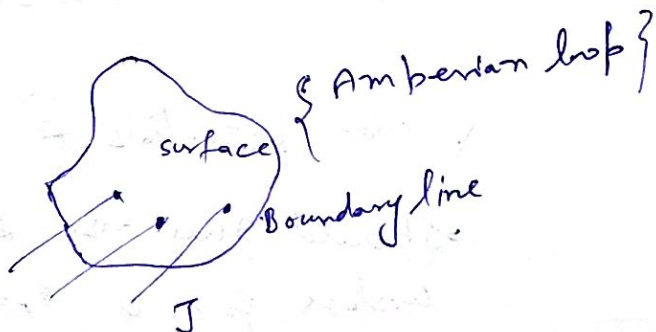 { Amperian loop }
surface
Boundary line
J